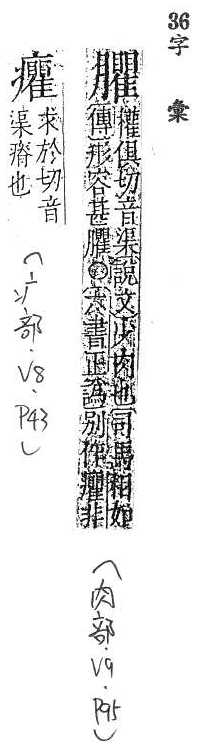 36 字彙
臞 權俱切音渠說文少肉也司馬相如
傳形容甚臞○六書正譌別作癯非
(肉部.V9.P95)
癯 求於切音
渠瘠也
(疒部.V8.P43)